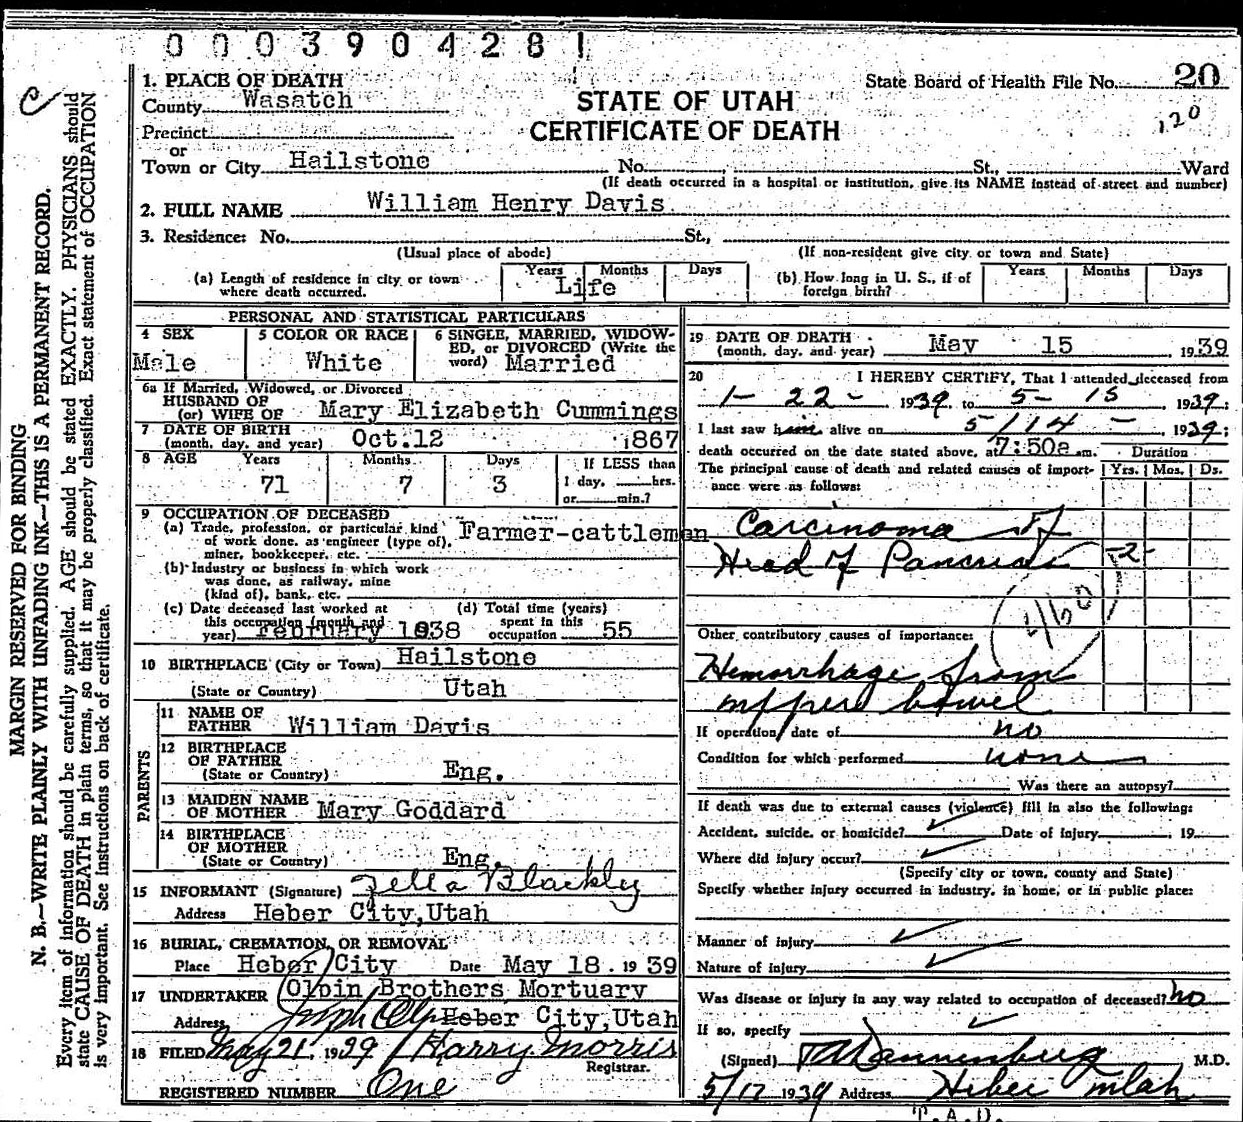 0003904281
1. PLACE OF DEATH
State Board of Health File No. 20
County Wasatch
STATE OF UTAH
120
Precinct
CERTIFICATE OF DEATH
or
Town or City Hailstone No. St., Ward
(If death occurred in a hospital or institution, give its NAME instead of street and number)
2. FULL NAME William Henry Davis
3. Residence: No. St.,
(Usual place of abode) (If non-resident give city or town and State)
(a) Length of residence in city or town where death occurred. Years Months Days
Life
(b) How long in U. S., if of foreign birth? Years Months Days
PERSONAL AND STATISTICAL PARTICULARS
4 SEX 5 COLOR OR RACE 6 SINGLE, MARRIED, WIDOW-
ED, or DIVORCED (Write the
word) Married
Male White
6a If Married, Widowed, or Divorced
HUSBAND OF
(or) WIFE OF Mary Elizabeth Cummings
7 DATE OF BIRTH
(month, day, and year) Oct.12 1867
8 AGE Years Months Days If LESS than
71 7 3 1 day, hrs.
or min.?
9 OCCUPATION OF DECEASED
(a) Trade, profession, or particular kind
of work done, as engineer (type of),
miner, bookkeeper, etc. Farmer-cattleman
(b) Industry or business in which work
was done, as railway, mine
(kind of), bank, etc.
(c) Date deceased last worked at
this occupation (month and
year) February 1938
(d) Total time (years)
spent in this
occupation 55
10 BIRTHPLACE (City or Town) Hailstone
(State or Country) Utah
PARENTS
11 NAME OF
FATHER William Davis
12 BIRTHPLACE
OF FATHER
(State or Country) Eng.
13 MAIDEN NAME
OF MOTHER Mary Goddard
14 BIRTHPLACE
OF MOTHER
(State or Country) Eng.
15 INFORMANT (Signature) Zella Blackley
Address Heber City,Utah
16 BURIAL, CREMATION, OR REMOVAL
Place Heber City Date May 18. 1939
17 UNDERTAKER Olpin Brothers Mortuary
Address Heber City,Utah
18 FILED May 21, 1939 Harry Morris
Registrar.
REGISTERED NUMBER One
19 DATE OF DEATH
(month, day, and year) May 15 1939
20 I HEREBY CERTIFY, That I attended deceased from
1- 22- 1939, to 5- 15, 1939;
I last saw him alive on 5/14 - 1939;
death occurred on the date stated above, at 7:50a m.
Duration
The principal cause of death and related causes of import-
ance were as follows:
Yrs. Mos. Ds.
Carcinoma of
Head of Pancreas -2-
Other contributory causes of importance:
Hemorrhage from
upper bowel
If operation, date of no
Condition for which performed none
Was there an autopsy?
If death was due to external causes (violence) fill in also the following:
Accident, suicide, or homicide? Date of injury , 19
Where did injury occur?
(Specify city or town, county and State)
Specify whether injury occurred in industry, in home, or in public place:
Manner of injury
Nature of injury
Was disease or injury in any way related to occupation of deceased? no
If so, specify
(Signed) Dannenberg M.D.
5/17 1939 Address Heber Utah
T.A.D.
MARGIN RESERVED FOR BINDING
N. B.—WRITE PLAINLY WITH UNFADING INK—THIS IS A PERMANENT RECORD.
Every item of information should be carefully supplied. AGE should be stated EXACTLY. PHYSICIANS should
state CAUSE OF DEATH in plain terms, so that it may be properly classified. Exact statement of OCCUPATION
is very important. See instructions on back of certificate.